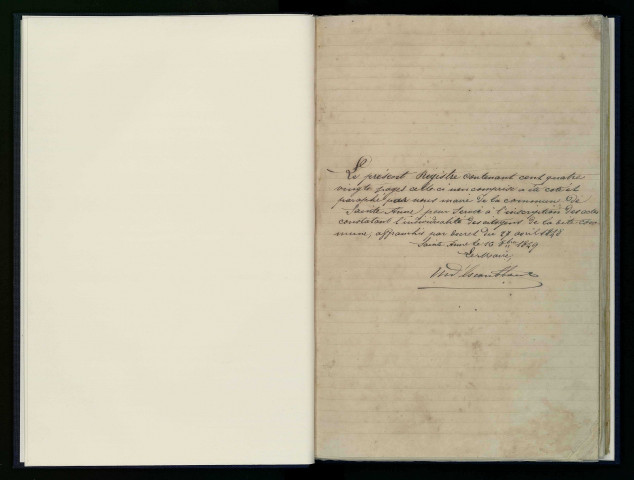 Le présent Registre contenant cent quatre
vingts pages celle ci non comprise a été coté et
paraphé par nous maire de la commune de
Sainte Anne pour servir à l'inscription des actes
constatant l'individualité des citoyens de la dite Com-
mune, affranchis par decret du 27 avril 1848
Sainte Anne le 10 8bre 1849
Le Maire,